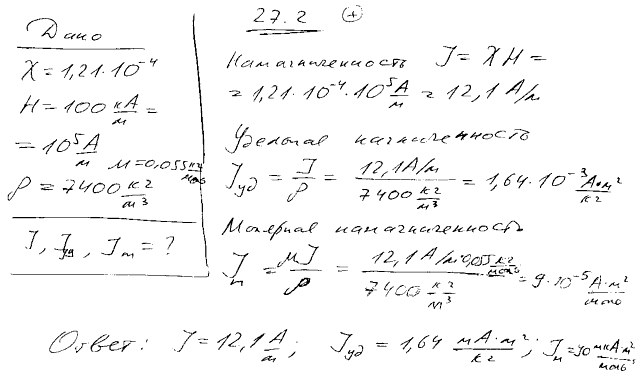 27.2 (+)
Дано
χ = 1,21·10⁻⁴
H = 100 кА/м =
= 10⁵ А/м μ = 0,055 кг/моль
ρ = 7400 кг/м³
J, Jуд, Jm = ?
Намагниченность J = χH =
= 1,21·10⁻⁴·10⁵ А/м = 12,1 А/м
Удельная намагниченность
Jуд = J/ρ = 12,1 А/м / 7400 кг/м³ = 1,64·10⁻³ А·м²/кг
Молярная намагниченность
Jм = μJ/ρ = 12,1 А/м·0,055 кг/моль / 7400 кг/м³ = 9·10⁻⁵ А·м²/моль
Ответ: J = 12,1 А/м; Jуд = 1,64 мА·м²/кг; Jм = 90 мкА·м²/моль